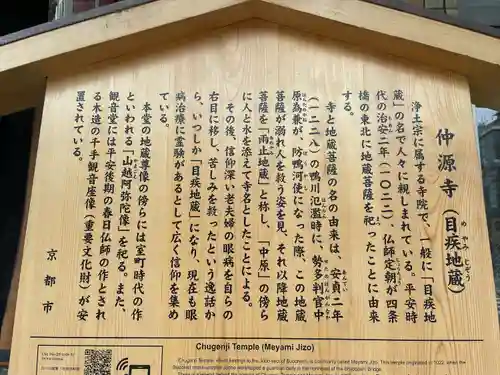 仲源寺（目疾地蔵）
浄土宗に属する寺院で、一般に「目疾地
蔵」の名で人々に親しまれている。平安時
代の治安二年（一〇二二）、仏師定朝が四条
橋の東北に地蔵菩薩を祀ったことに由来
する。
寺と地蔵菩薩の名の由来は、安貞二年
（一二二八）の鴨川氾濫時に、勢多判官中
原為兼が、防鴨河使になった際、この地蔵
菩薩が溺れ人を救う姿を見、それ以降地蔵
菩薩を「雨止地蔵」と称し、「中原」の傍ら
に人と水を添えて寺名としたことによる。
その後、信仰深い老夫婦の眼病を自らの
右目に移し、苦しみを救ったという逸話か
ら、いつしか「目疾地蔵」になり、現在も眼
病治療に霊験があるとして広く信仰を集め
ている。
本堂の地蔵尊像の傍らには室町時代の作
といわれる「山越阿弥陀像」を祀る。また、
観音堂には平安後期の春日仏師の作とされ
る木造の千手観音座像（重要文化財）が安
置されている。
京都市
Chugenji Temple (Meyami Jizo)